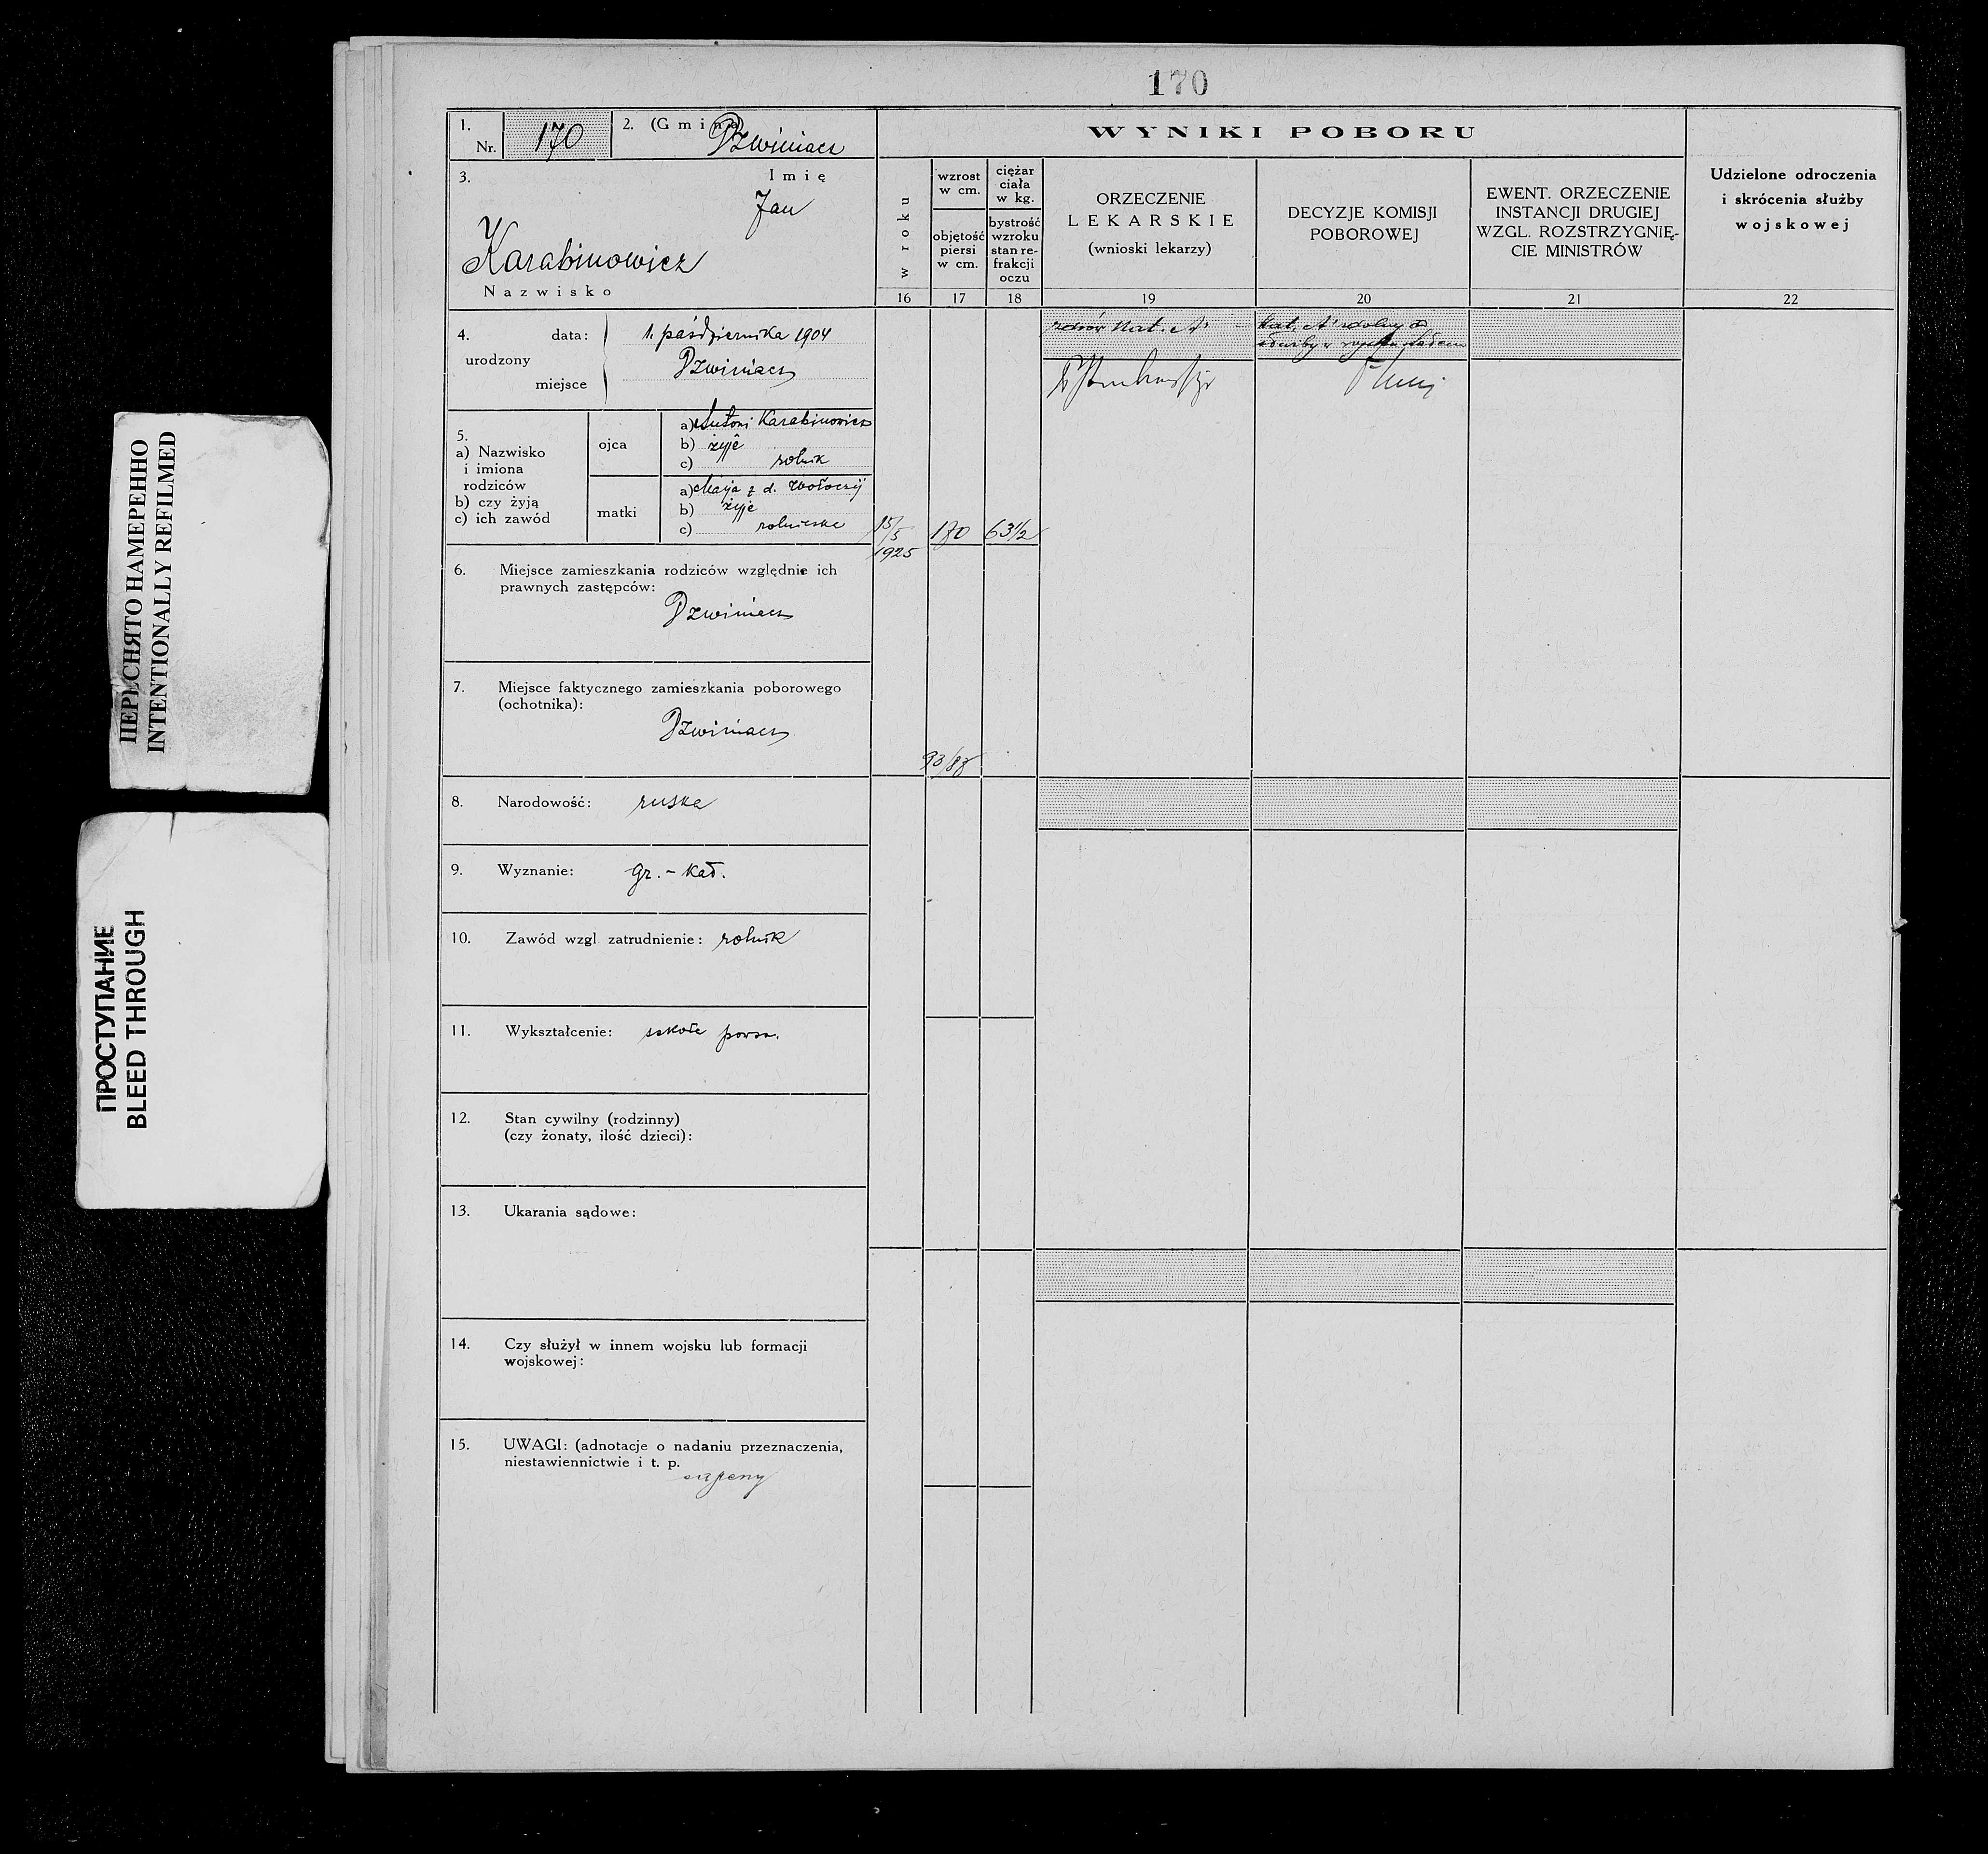 170
1.
Nr. 170
2. (Gmina) Dzwiniacz
3.
Imię
Jan
Karabinowicz
Nazwisko
4. data: 1. października 1904
urodzony
miejsce Dzwiniacz
5.
a) Nazwisko
i imiona
rodziców
b) czy żyją
c) ich zawód
ojca
a) Antoni Karabinowicz
b) żyje
c) rolnik
matki
a) Marja z d.
b) żyje
c)
6. Miejsce zamieszkania rodziców względnie ich
prawnych zastępców:
Dzwiniacz
7. Miejsce faktycznego zamieszkania poborowego
(ochotnika):
Dzwiniacz
8. Narodowość: ruska
9. Wyznanie: gr.-kat.
10. Zawód wzgl. zatrudnienie: rolnik
11. Wykształcenie: szkoła
12. Stan cywilny (rodzinny)
(czy żonaty, ilość dzieci):
13. Ukarania sądowe:
14. Czy służył w innem wojsku lub formacji
wojskowej:
15. UWAGI: (adnotacje o nadaniu przeznaczenia,
niestawiennictwie i t. p.
WYNIKI POBORU
w roku
16
wzrost
w cm.
objętość
piersi
w cm.
17
ciężar
ciała
w kg.
bystrość
wzroku
stan re-
frakcji
oczu
18
ORZECZENIE
LEKARSKIE
(wnioski lekarzy)
19
DECYZJE KOMISJI
POBOROWEJ
20
EWENT. ORZECZENIE
INSTANCJI DRUGIEJ
WZGL. ROZSTRZYGNIĘ-
CIE MINISTRÓW
21
Udzielone odroczenia
i skrócenia służby
wojskowej
22
15/5
1925
170
63 1/2
zdrów Kat. A
Kat. A zdolny do
służby w
ПЕРЕСНЯТО НАМЕРЕННО
INTENTIONALLY REFILMED
ПРОСТУПАНИЕ
BLEED THROUGH